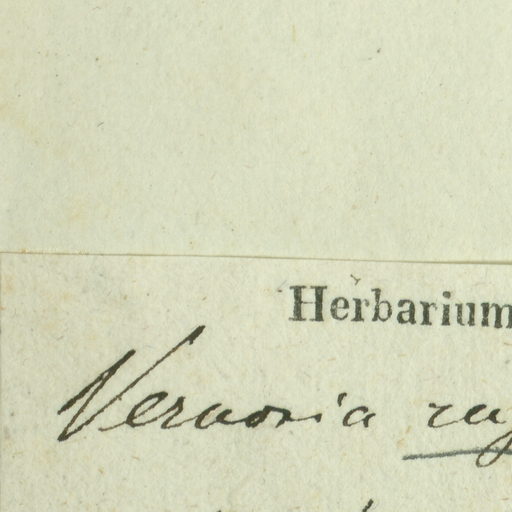 Herbarium
Vernonia